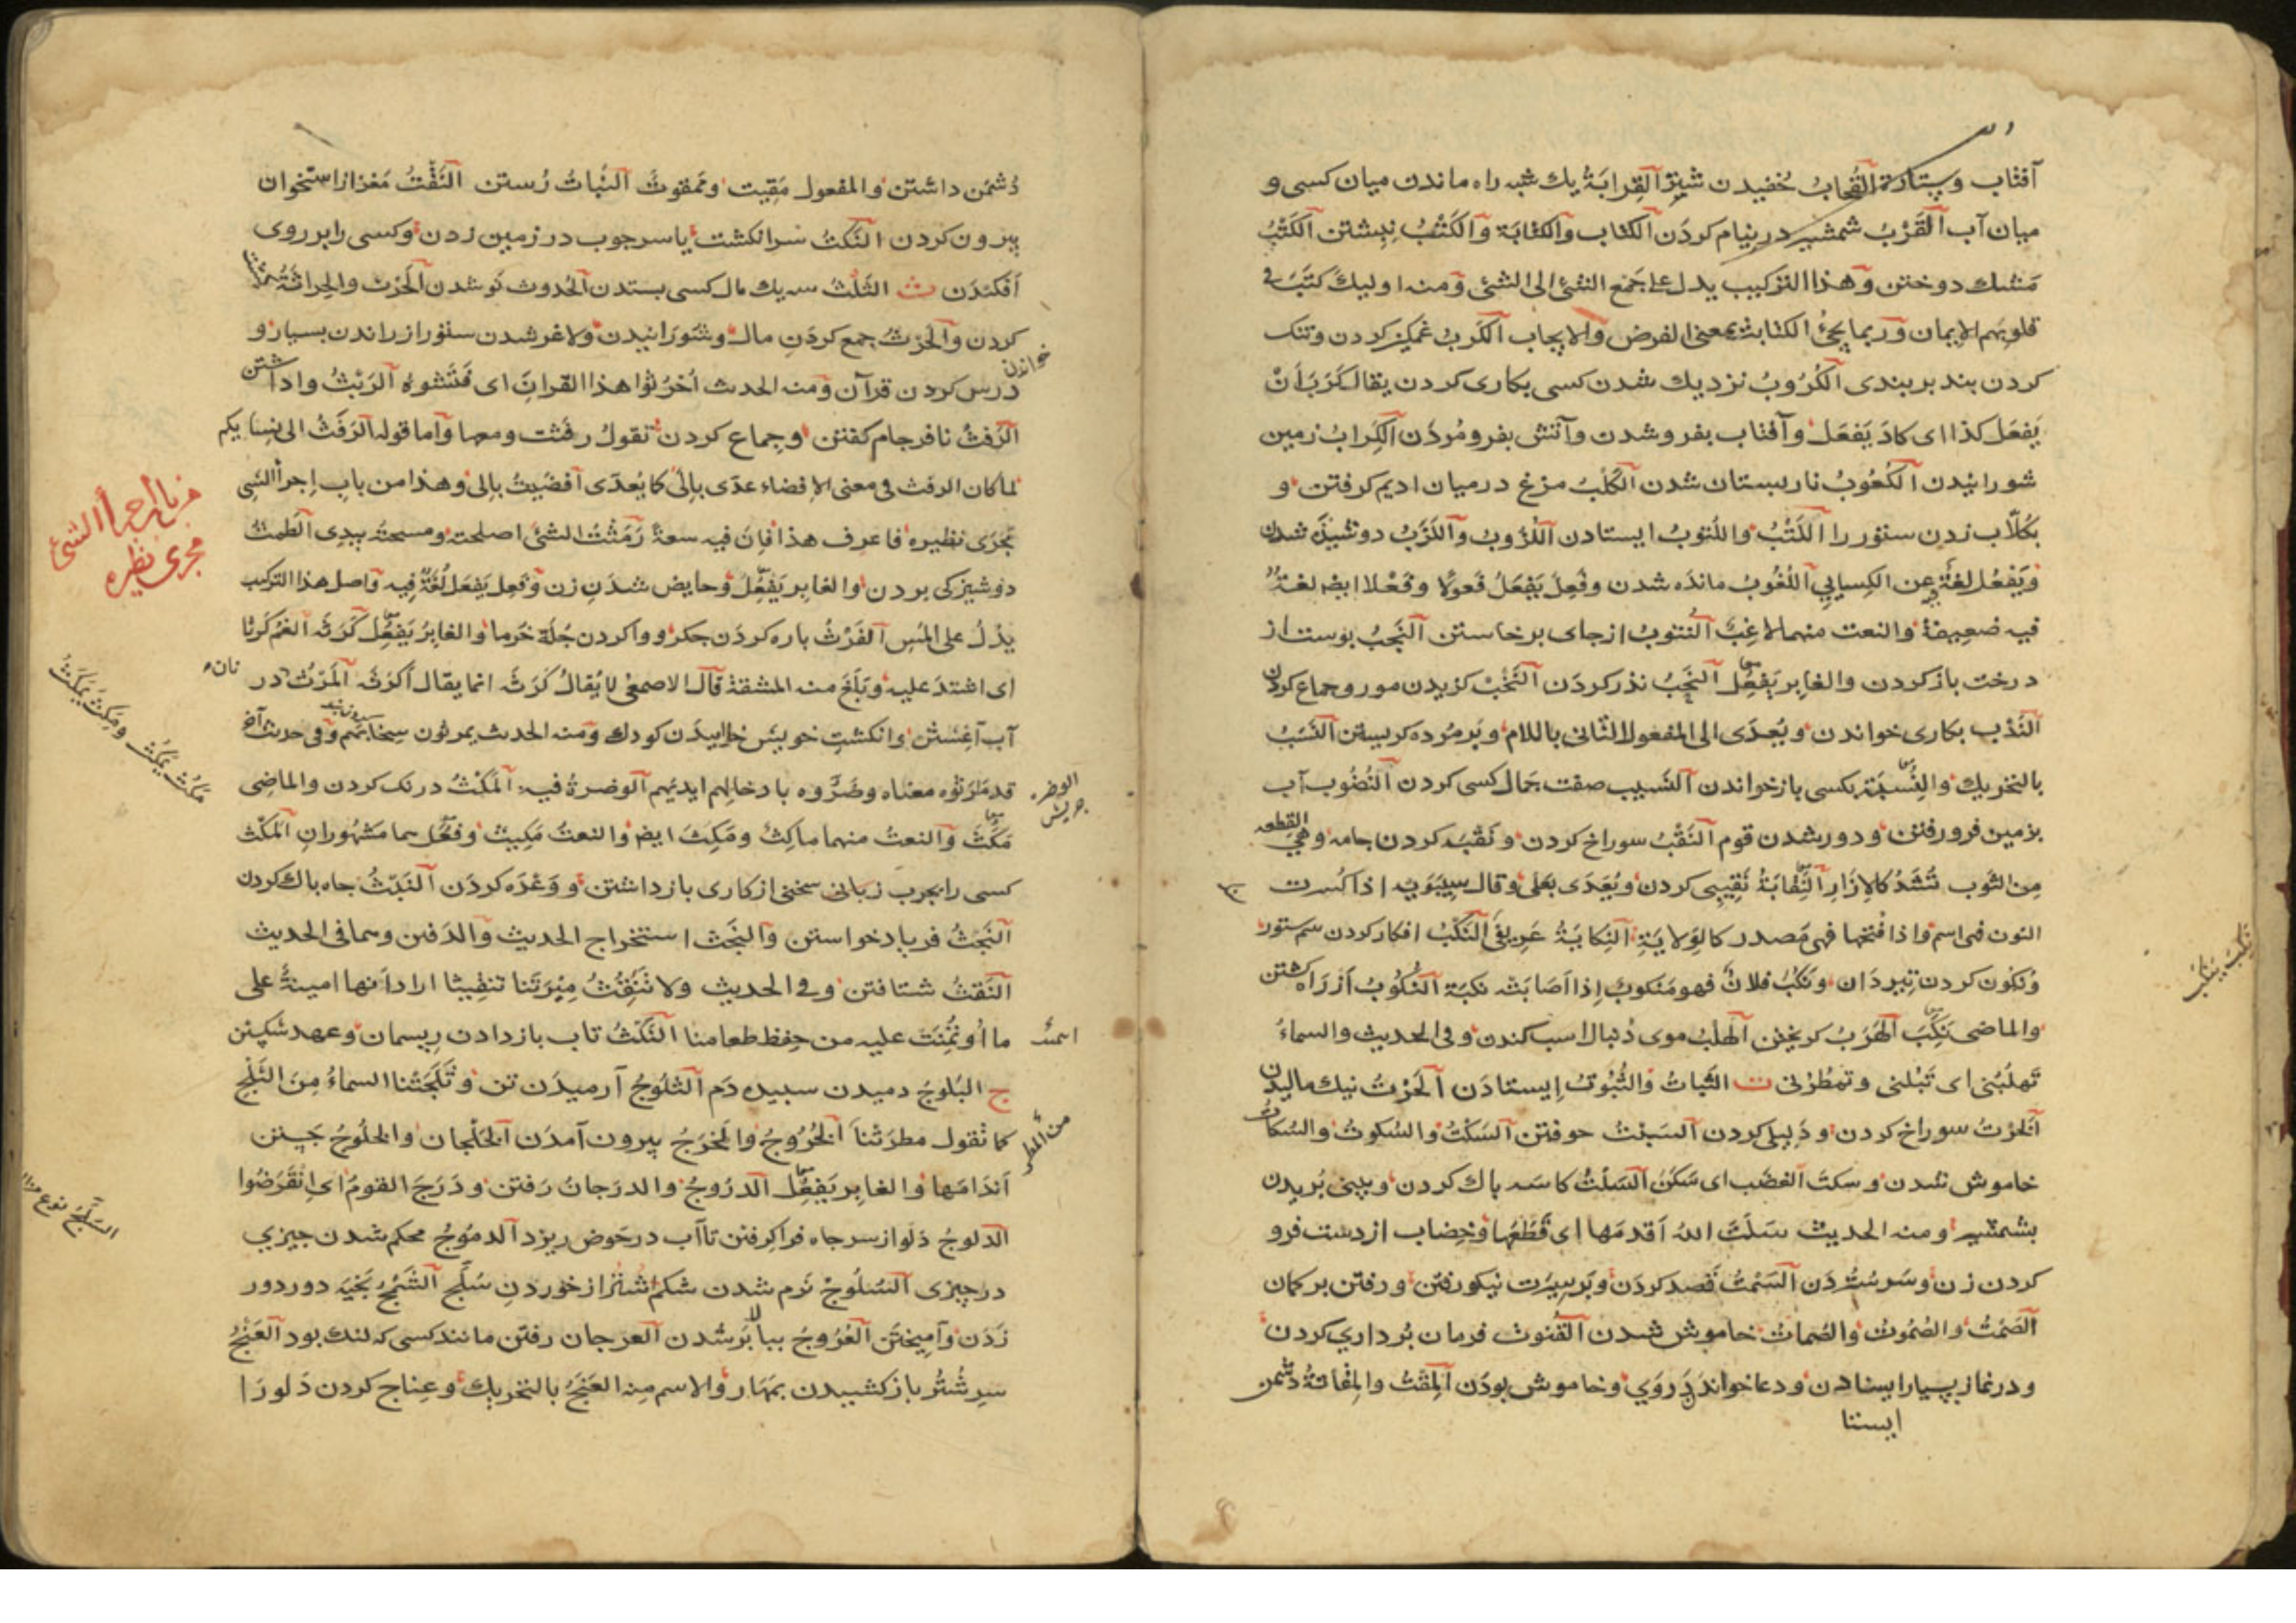 آفتاب وستاره القُحابُ خُفيدن شتر القِرابَةُ يك شبه راه ماندن ميان كسى و
ميان آب القَرْبُ شمشير در نيام كردَن الكتاب والكتابَة والكَتْبُ نِبِشتن الكَتْبُ
مَشك دوختن وهذا التركيب يدل على جَمع الشئ الى الشئ ومنه اوليك كتَبَ فى
قلوبِهم الايمان وربما يجئُ الكتابت بمعنى الفرض والايجاب الكَربُ غمكِين كردن وتنك
كردن بند بر بندى الكُرُوبُ نزديك شدن كسى بكارى كردن يقال كَرَبَ أنْ
يَفعَل كذا اى كادَ يَفعَل وآفتاب بفرو شدن وآتش بفرو مُردَن الكِرابُ زمين
شورانيدن الكُعُوبُ نار بستان شدن الكَلبُ مزغ درميان اديم كرفتن و
بكُلّاب زدن ستور را اللَتْبُ واللُتوبُ ايستادن اللُزُوبُ واللَزَبُ دوسَيدَه شدن
وَيَفعُل لغةٌ عن الكِسايى اللُغُوبُ مانده شدن وفُعِلَ يَفعَلُ فَعولًا وفَعْلا ايضا لغةٌ
فيه ضعِيفةٌ والنعت منهما لاغِبٌ النُتوبُ ازجاى برخاستن النَجبُ پوست از
درخت باز كردن والغابر يَفعِل النَحبُ نذر كردَن النَخْبُ كزيدن مور وجماع كردن
النَدْب بكارى خواندن ويُعدَى الى المفعول الثانى باللام وبَر مُرده كريستن النَسَبُ
بالتحريك والنِسبَة بكسى بازخواندن النَسيب صفت جَمال كسى كردن النُضُوب آب
بزمين فرو رفتن ودور شدن قوم النَقْبُ سوراخ كردن ونُقبَه كردن جامه وهى القطعه
مِن الثوب تُشَدُّ كالإزارِ النِقابَةُ نَقِيبى كردن ويُعَدَى بعلى وقال سِيبَوَيه اذا كُسِرت
النون فهى اسم واذا فُتحها فهى مَصدر كالوَلايَة النِكابَةُ عَرِيفى النَكْبُ افكار كردن سم ستور
ونكُون كردن تيردَان ونُكِبَ فلانٌ فهو مَنكوبٌ إذا اَصَابَتْه نكبَة النُكُوبُ اَز رَاه كشتن
والماضى نَكِبَ الهَرَبُ كريختن الهَلبُ موى دُنبال اسب كندن وفى الحديث والسماءُ
تَهلبُنى اى تَبُلنى وتمطُرنى ت الثَباتُ والثُبُوتُ إيستادَن الحَرْتُ نيك ماليدن
الخَرْتُ سوراخ كردن ودَليلى كردن السَبتُ حو فتن السَكْتُ والسُكوتُ والسُكاتُ
خاموش شدن وسكتَ الغضَب اى سَكَنَ السَلتُ كاسَه پاك كردن وبينى بُريدن
بشمشير ومنه الحديث سَلَتَ اللهُ اَقدمَها اى قَطَعَها وخِضاب از دست فرو
كردن زن وسَر سُتُردَن السَمتُ قَصد كردَن وبَر سِيرَت نيكو رفتن ورفتن بر كمان
الصَمْتُ والصُمُوتُ والصُماتُ خاموش شدن القُنوت فرمان بُردارى كردن
ودر نماز بسيار ايستادن ودعا خواندَن دَروَى وخاموش بودَن المَقتُ والمِقاتةُ دشمن
ايستا
نَكِبَ يَنكَبُ
دُشمَن داشتن والمفعول مَقِيت ومَمقوتٌ النَباتُ رُستن النَقْتُ مَغز از استخوان
بيرون كردن النَكتُ سَر انكشت يا سر چوب در زمين زدن وكسى را بر روى
اَفكندَن ث الثَلثُ سه يك مال كسى بستدن الحُدوث نَو شدن الحَرث والحِراثَةُ
كردن والحَرثُ جمع كردَنِ مال وشَورَانيدن ولاغر شدن ستور از راندن بسيار و
درس كردن قرآن ومنه الحديث اُحرُثوا هذا القرانَ اى فَتِّشوهُ الرَبثُ واداشتن
خواندن
الرَفثُ نافرجام كفتن وجماع كردن تقولُ رفَثت ومعها وآما قوله الرَفَثُ الى نسايكم
لما كان الرفث فى معنى الافضاء عدّى بإلىَ كما يُعدّى آفضَيتُ بإلى وهذا من بابِ إجرا الشئِ
مُجرَى نظيرِه فاعرف هذا فإنَ فيه سعةً رَمَثتُ الشئَ اصلحته ومسحتَه بيدِى الطَمثُ
دوشيزكى بردن والغابر يَفعِلُ وحايض شدَنِ زن وفَعِل يَفعَل لُغَةٌ فيه واصل هذا التركيب
يدُلُ على المَسِ الفَرْثُ پاره كردَن جكر وواكردن جُلّه خرما والغابرُ يَفعِل كَرَثَه الغَمُ كرثا
اى اشتدَ عليه وبَلَغَ منه المشقةَ قالَ الاصمعىُ لا يُقالُ كَرَثَه انما يقال أَكرَثَه المَرْثُ در
نان
آب آغِشتن وانكشتِ خويش خاييدَن كودك ومنه الحديث يمرثون سِخابَهم وفى حديث آخر
قد مَرَثوُه معناه وضَرّوه بادخالهم ايديَهم الوضرةُ فيه المَكثُ درنك كردن والماضى
مَكَثَ والنعتُ منهما ماكِثٌ ومَكِثَ ايضا والنعتُ مَكِيثٌ وفعُل مما مَشهُورانِ المَلثُ
كسى را بچرب زبانى سخنى از كارى بازداشتن ووَعْدَه كردَن النَبَثُ چاه پاك كردن
النَجْثُ فرياد خواستن والنَجْث استخراج الحديث والدَفين وسما فى الحديث
النَقثُ شتافتن وفى الحديث ولا تُنَقِثُ مِيرَتَنا تنقِيثا اراد اَنها امينةٌ على
ما اُوتُمِنَت عليه من حِفظ طعامنا النَكثُ تاب بازدادن ريسمان وعهد شكستن
ج البُلوجُ دميدن سپيده دَم الثلُوجُ آرميدَن تن وثَلَجَتْنا السماءُ مِنَ الثَلجِ
كما تُقول مطرَتْنا الخُرُوجُ والمَخرَجُ بيرون آمدَن الخَلَجان والخلُوجُ جَستن
من المطر
اَندَامَها والغابر يَفعِل الدرُوجُ والدرَجانُ رَفتن ودَرَجَ القومُ اى اِنقَرَضُوا
الدلوجُ دَلو از سر چاه فراكِرفتن تا آب در حَوض ريزد الدمُوجُ محكم شدن چيزى
در چيزى السُلوجُ نَرم شدن شكم شتر از خوردنِ سُلَّج الشَمْجُ بَخيَه دور دور
زَدَن وآميختَن العُرُوجُ ببالا بَر شدن العرجان رفتن مانند كسى كه لنك بود العَنْجُ
سرِ شُتُر باز كشيدن بمَهَار والاسم مِنه العَنَجُ بالتحريك وعِناج كردن دَلو رَا
من باب اجرا الشئ
مجرى نظيره
مَكَثَ يَمكُثُ ومَكِثَ يَمكَثُ